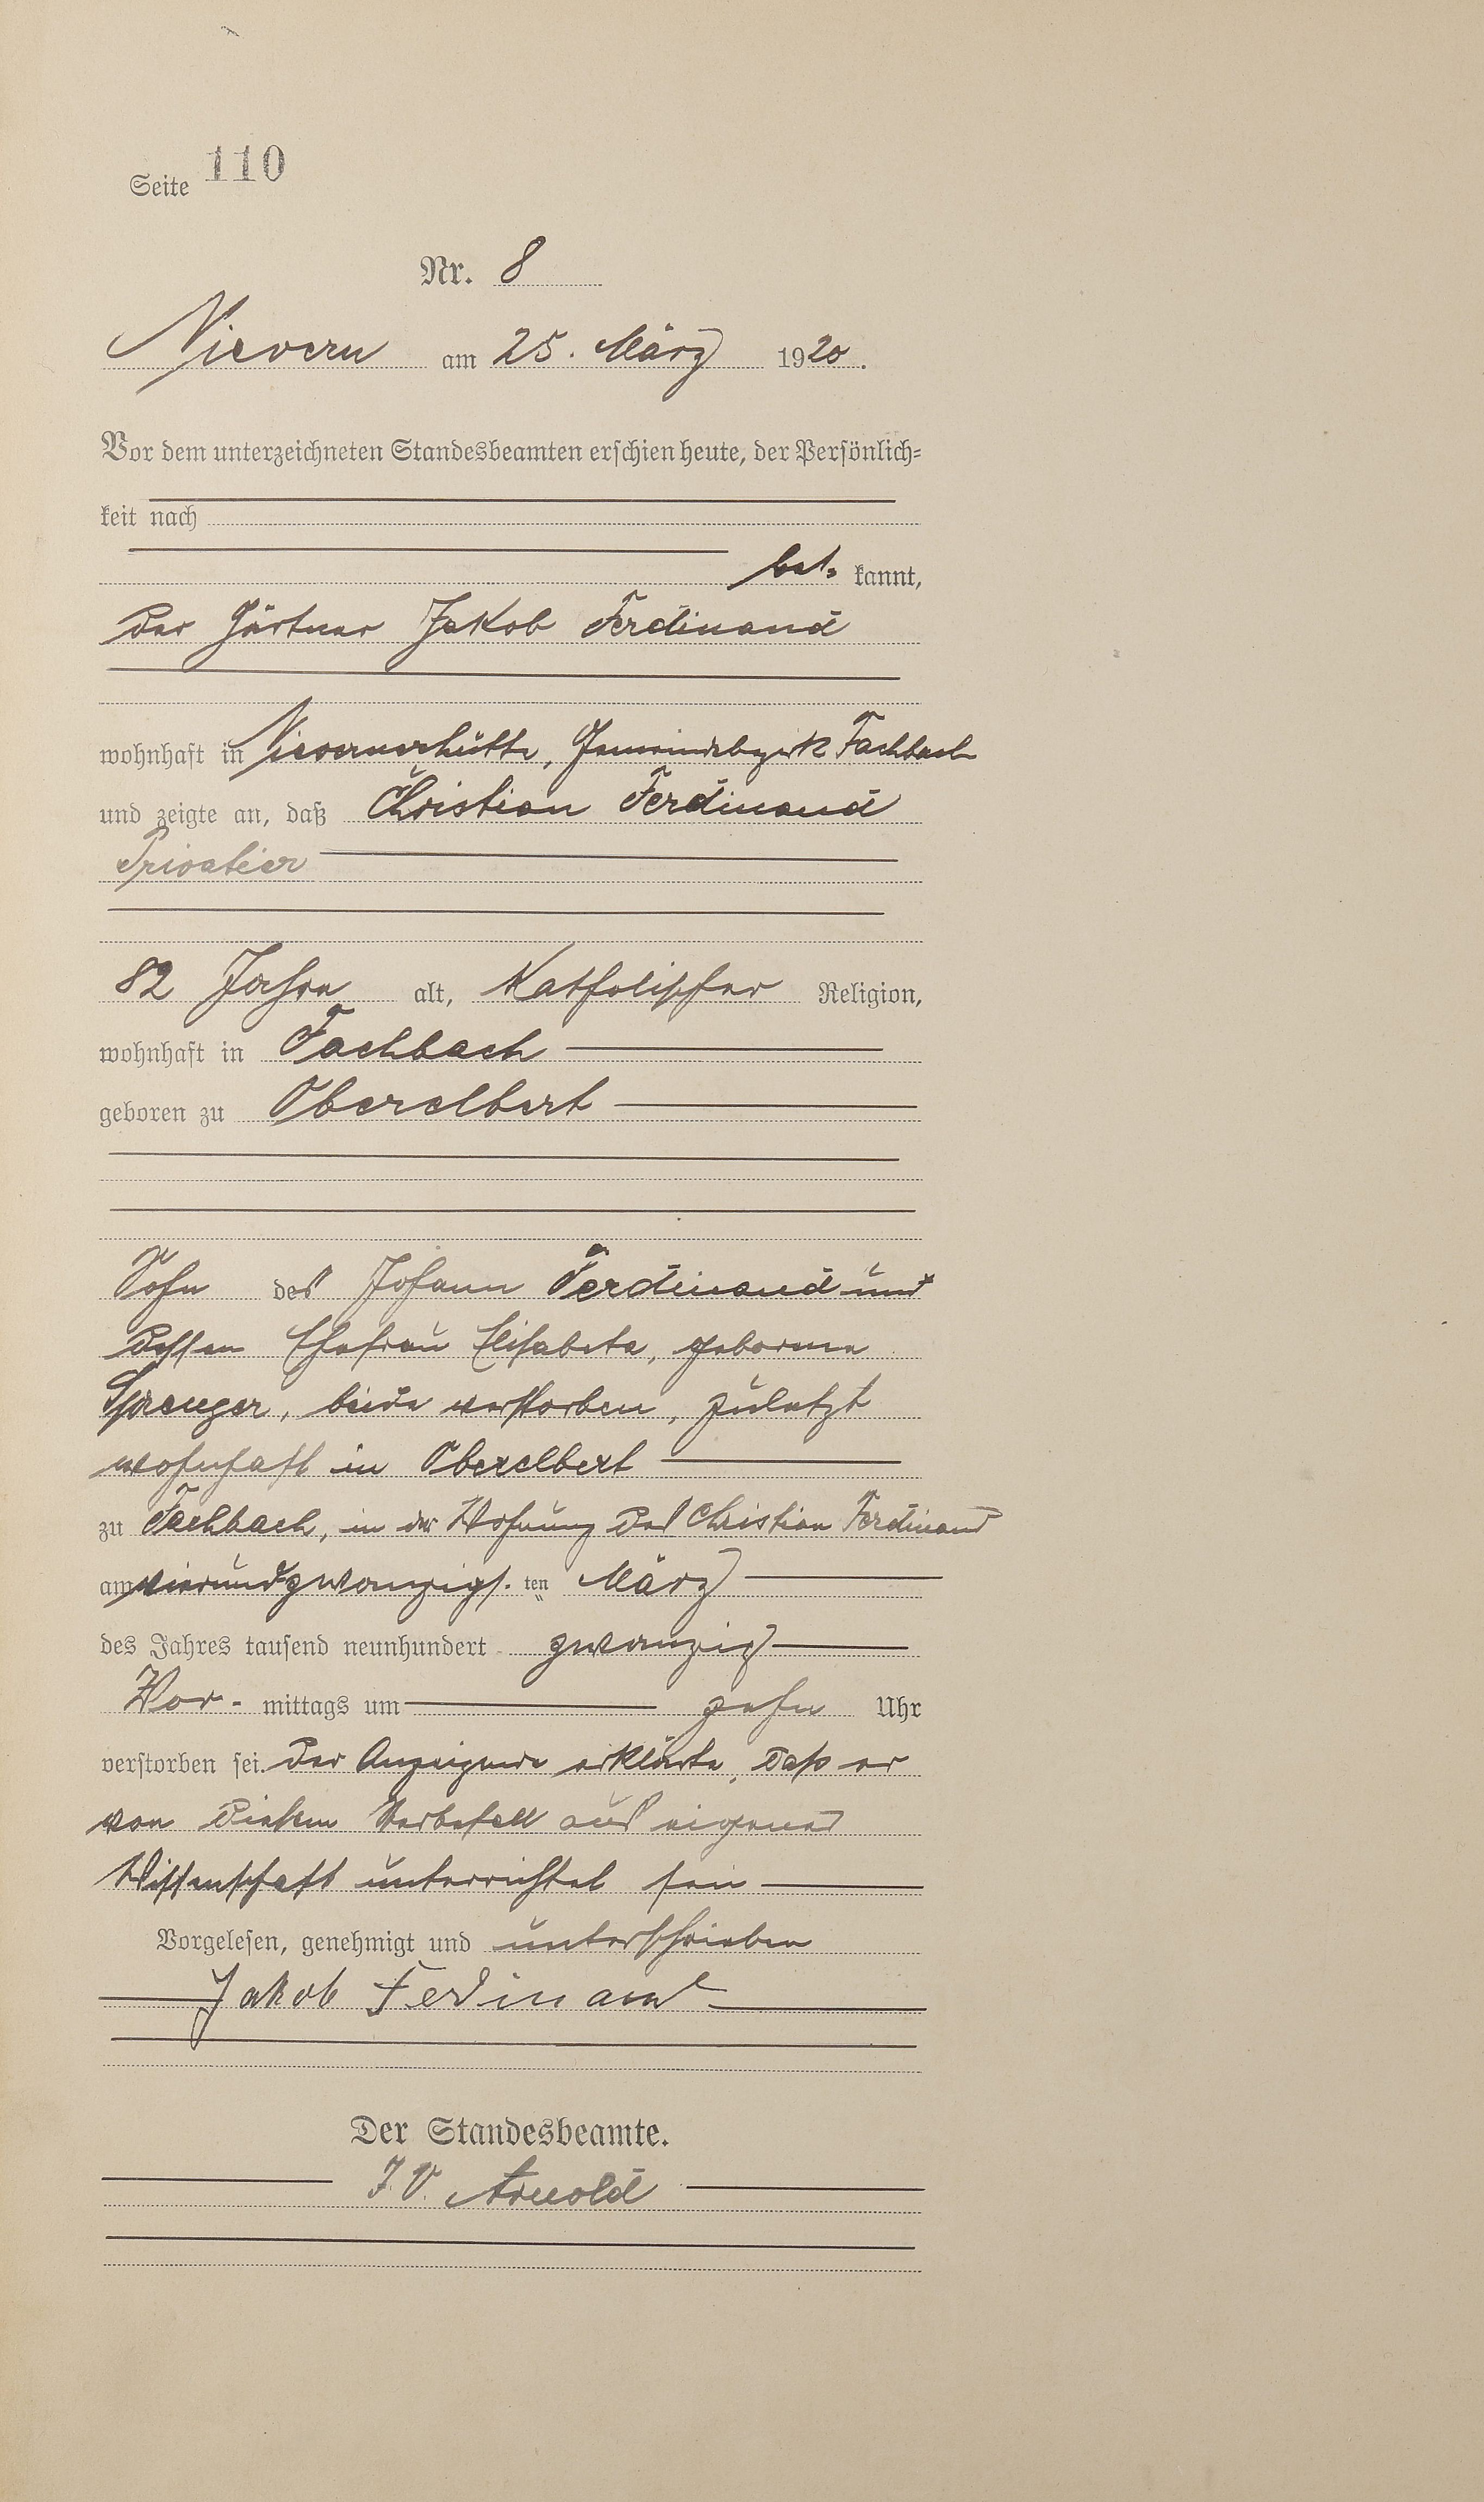 Seite 110
Nr. 8
Nievern am 25. März 1920.
Vor dem unterzeichneten Standesbeamten erschien heute, der Persönlich-
keit nach
be- kannt,
der Gärtner Jakob Ferdinand
wohnhaft in Nievernerhütte, Gemeindebezirk Fachbach
und zeigte an, daß Christian Ferdinand
Privatier
82 Jahre alt, katholischer Religion,
wohnhaft in Fachbach
geboren zu Oberelbert
Sohn des Johann Ferdinand und
dessen Ehefrau Elisabeta, geborene
Sprenger, beide verstorben, zuletzt
wohnhaft in Oberelbert
zu Fachbach, in der Wohnung des Christian Ferdinand
am vierundzwanzigs. ten März
des Jahres tausend neunhundert zwanzig
Vor- mittags um zehn Uhr
verstorben sei. Der Anzeigende erklärte, daß er
von diesem Sterbefall aus eigener
Wissenschaft unterrichtet sei
Vorgelesen, genehmigt und unterschrieben
Jakob Ferdinand
Der Standesbeamte.
J.V. Arnold